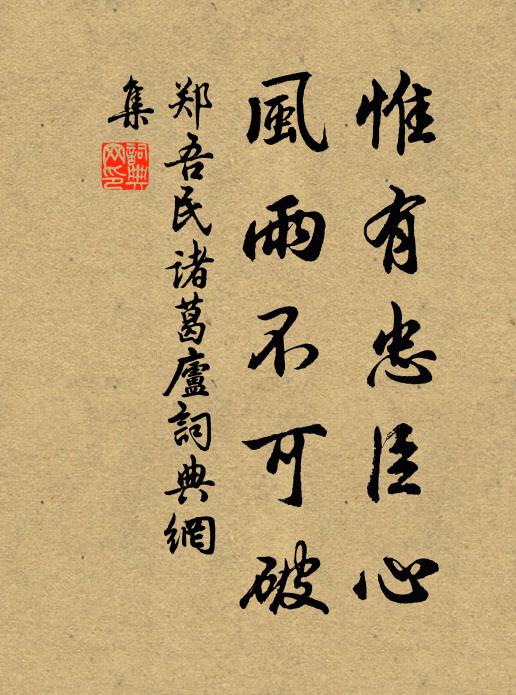 惟有忠臣心
風雨不可破
郑吾民諸葛廬詞典網
集
詞典網印